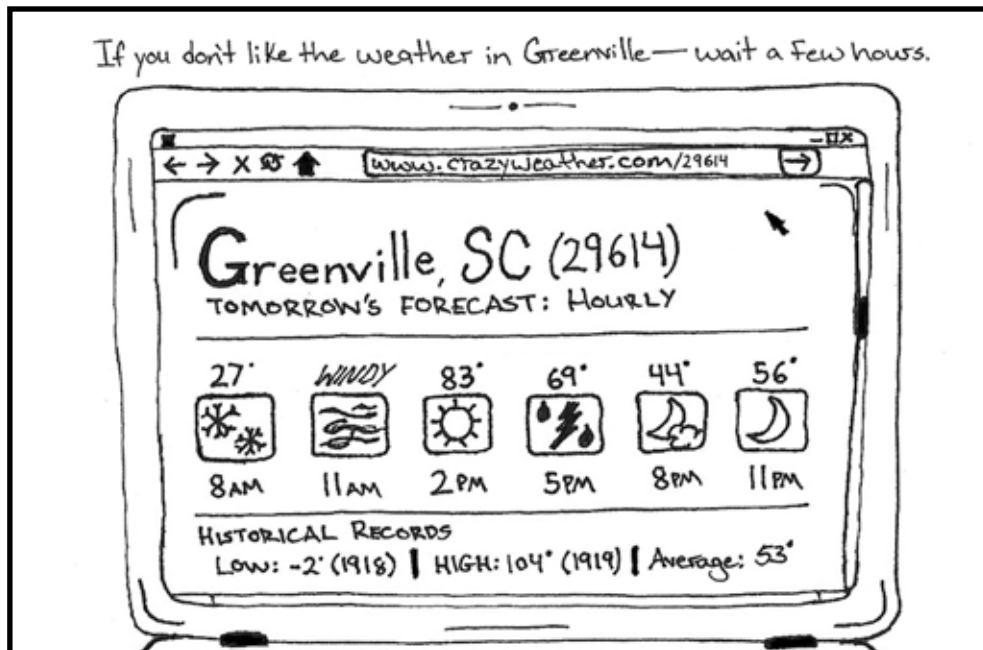 If you don't like the weather in Greenville — wait a few hours.
www.crazyweather.com/29614
Greenville, SC (29614)
TOMORROW'S FORECAST: HOURLY
27° WINDY 83° 69° 44° 56°
8AM 11AM 2PM 5PM 8PM 11PM
HISTORICAL RECORDS
LOW: -2° (1918) | HIGH: 104° (1919) | Average: 53°